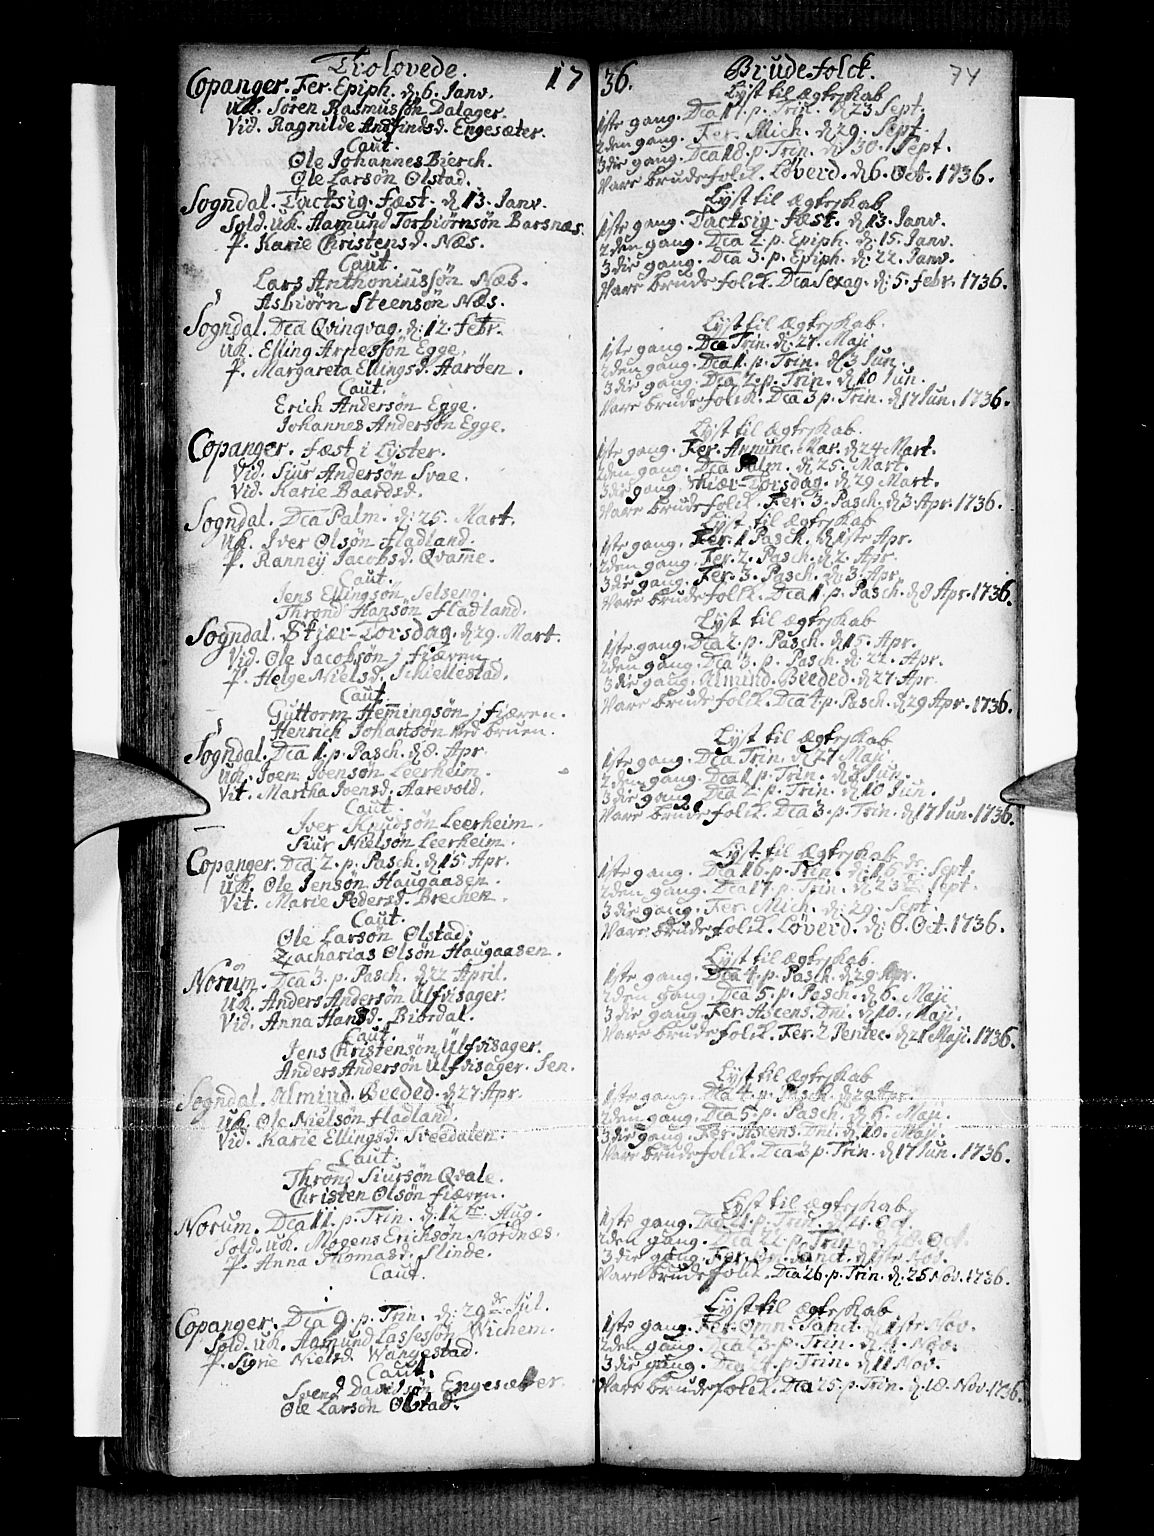 Trolovede. 17
Copanger. Fer. Epiph. d. 6. Janv.
uk. Sören Rasmussøn Dalager.
Vid. Ragnilde Anfindsd. Engesæter.
Caut.
Ole Johannes Bierch.
Ole Larsøn Ølstad.
Sogndal. Tacksig. fæst. d. 13. Janv.
Sold. uk. Aamund Torbiørnsøn Barsnæs.
P. Karie Christensd. Næs.
Caut.
Lars Anthoniussøn Næs.
Asbiørn Steensøn Næs.
Sogndal. Dca Qvinqvag. d. 12. febr.
uk. Elling Arnessøn Egge.
P. Margareta Ellingsd. Harøen.
Caut.
Erich Andersøn Egge.
Johannes Andersøn Egge.
Copanger. fæst i Lyster.
Vid. Siur Andersøn Svae.
Vid. Karie Baardsd.
Sogndal. Dca Palm. d. 25. Mart.
uk. Iver Olsøn fladland.
P. Ranney Jacobsd. Qvamme.
Caut.
Jens Ellingsøn Selseng.
Thrond Hansøn fladland.
Sogndal. Skiær-Torsdag. d. 29. Mart.
Vid. Ole Jacobsøn j fiæren.
P. Helge Nielsd. Skiellestad.
Caut.
Guttorm Hemmingsøn j fiæren.
Henrich Johansøn ved bruen.
Sogndal. Dca 1. p. Pasch. d. 8. Apr.
uk. Joen Joensøn Leerheim.
Vit. Martha Svensd. Aarevold.
Caut.
Iver Knudsøn Leerheim.
Siur Nielsøn Leerheim.
Copanger. Dca 2. p. Pasch. d. 15. Apr.
uk. Ole Jensøn Haugaasen.
Vit. Marie Pedersd. Brechen.
Caut.
Ole Larsøn Ølstad.
Zacharias Olsøn Haugaasen.
Norum. Dca 3. p. Pasch. d. 22 April.
uk. Anders Andersøn Ulfvisager.
Vid. Anna Hansd. Biordal.
Caut.
Jens Christensøn Ulfvisager.
Anders Andersøn Ulfvisager. Sen.
Sogndal. Almind. Beeded. d. 27 Apr.
uk. Ole Nielsøn fladland.
Vid. Karie Ellingsd. Sveedalen.
Caut.
Thrond Siursøn Qvale.
Christen Olsøn fiæren.
Norum. Dca 11. p. Trin. d. 12te Aug.
Sold. uk. Mogens Erichsøn Nordnæs.
P. Anna Thomasd. Slinde.
Caut.
Copanger. Dca 9. p. Trin. d. 29de Jul.
Sold. uk. Aamund Lassesøn Wichem.
P. Sigrie Nielsd. Wangestad.
Caut.
Svend Davidsøn Engesætter.
Ole Larsøn Ølstad.
36. Brudefolck. 74
Lyst til Ægteskab
1ste gang. Dca 17. p. Trin. d. 23 Sept.
2den gang. Fer. Mich. d. 29. Sept.
3die gang. Dca 18. p. Trin. d. 30. Sept.
Vare brudefolck. Løverd. d. 6. Oct. 1736.
Lyst til Ægteskab
1ste gang. Tacksig. fæst. d. 13. Janv.
2den gang. Dca 2. p. Epiph. d. 15. Janv.
3die gang. Dca 3. p. Epiph. d. 22. Janv.
Vare brudefolck. Dca Sexag. d. 5. febr. 1736.
Lyst til Ægteskab.
1ste gang. Dca Trin. d. 27. Maji
2den gang. Dca 1. p. Trin. d. 3 Jun.
3die gang. Dca 2. p. Trin. d. 10 Jun.
Vare brudefolck. Dca 3 p. Trin. d. 17 Jun. 1736.
Lyst til Ægteskab.
1ste gang. Fer. Annunc. Mar. d. 24 Mart.
2den gang. Dca Palm. d. 25. Mart.
3die gang. Skiær-Torsdag. d. 29 Mart.
Vare brudefolck. Fer. 3. Pasch. d. 3 Apr. 1736.
Lyst til Ægteskab
1ste gang. Fer. 1 Pasch. d. 1ste Apr.
2den gang. Fer. 2. Pasch. d. 2. Apr.
3die gang. Fer. 3. Pasch. d. 3 Apr.
Vare brudefolck. Dca 1. p. Pasch. d. 8 Apr. 1736.
Lyst til Ægteskab
1ste gang. Dca 2. p. Pasch. d. 15. Apr.
2den gang. Dca 3. p. Pasch. d. 22. Apr.
3die gang. Almind. Beeded. d. 27 Apr.
Vare brudefolck. Dca 4. p. Pasch. d. 29 Apr. 1736.
Lyst til Ægteskab
1ste gang. Dca Trin. d. 27 Maji
2den gang. Dca 1. p. Trin. d. 3 Jun.
3die gang. Dca 2. p. Trin. d. 10 Jun.
Vare brudefolck. Dca 3. p. Trin. d. 17 Jun. 1736.
Lyst til Ægteskab
1ste gang. Dca 16. p. Trin. d. 16de Sept.
2den gang. Dca 17. p. Trin. d. 23 Sept.
3die gang. Fer. Mich. d. 29. Sept.
Vare brudefolck. Løverd. d. 6. Oct. 1736.
Lyst til Ægteskab.
1ste gang. Dca 4. p. Pasch. d. 29 Apr.
2den gang. Dca 5. p. Pasch. d. 6. Maji
3die gang. Fer. Ascens. Dni. d. 10. Maji.
Vare brudefolck. Fer. 2 Pentec. d. 21 Maji. 1736.
Lyst til Ægteskab
1ste gang. Dca 4. p. Pasch. d. 29 Apr.
2den gang. Dca 5. p. Pasch. d. 6. Maji.
3die gang. Fer. Ascens. Dni. d. 10. Maji.
Vare brudefolck. Dca 3 p. Trin. d. 17 Jun. 1736.
Lyst til Ægteskab.
1ste gang. Dca 21. p. Trin. d. 21. Oct.
2den gang. Dca 22. p. Trin. d. 28. Oct.
3die gang. Fer. Omn. Sanct. d. 1ste Nov.
Vare brudefolck. Dca 26. p. Trin. d. 25 Nov. 1736.
Lyst til Ægteskab
1ste gang. Fer. Omn. Sanct. d. 1ste Nov.
2den gang. Dca 23. p. Trin. d. 4. Nov.
3die gang. Dca 24. p. Trin. d. 11 Nov.
Vare brudefolck. Dca 25. p. Trin. d. 18. Nov. 1736.